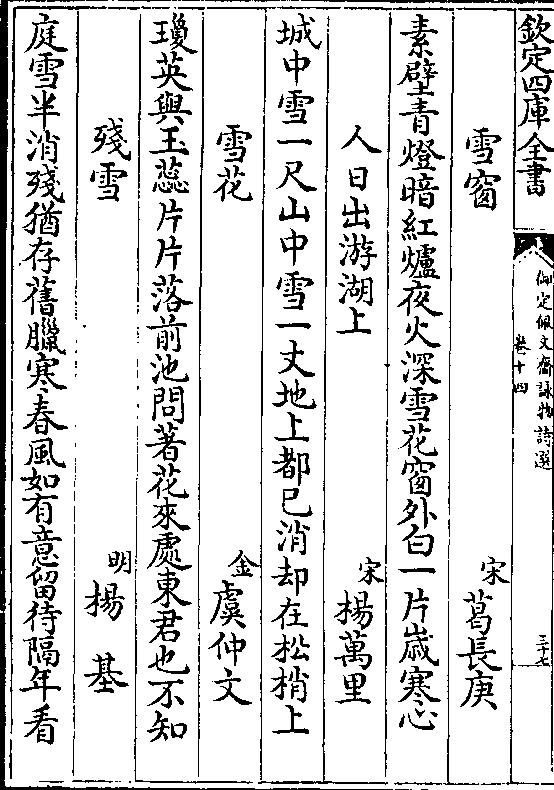 欽定四庫全書
御定佩文齋詠物詩選
卷十四
三十七
雪窗 宋 葛長庚
素壁青燈暗紅爐夜火深雪花窗外白一片歲寒心
人日出游湖上 宋 楊萬里
城中雪一尺山中雪一丈地上都已消却在松梢上
雪花 金 虞仲文
瓊英與玉蕊片片落前池問著花來處東君也不知
殘雪 明 楊基
庭雪半消殘猶存舊臘寒春風如有意留待隔年看